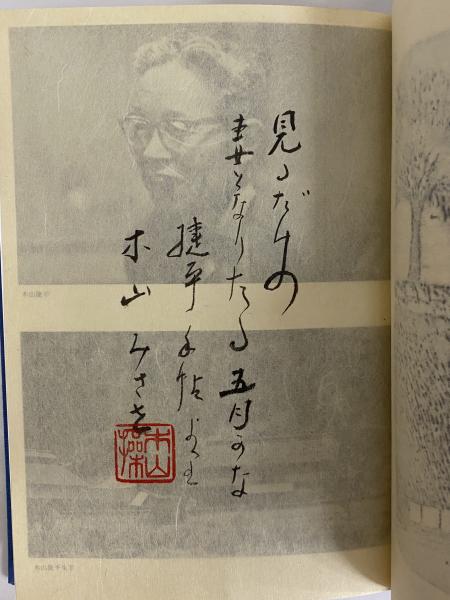 見るだけの
妻となりたる五月かな
捷平手帖より
木山みさを
木山操
木山捷平
木山捷平生家